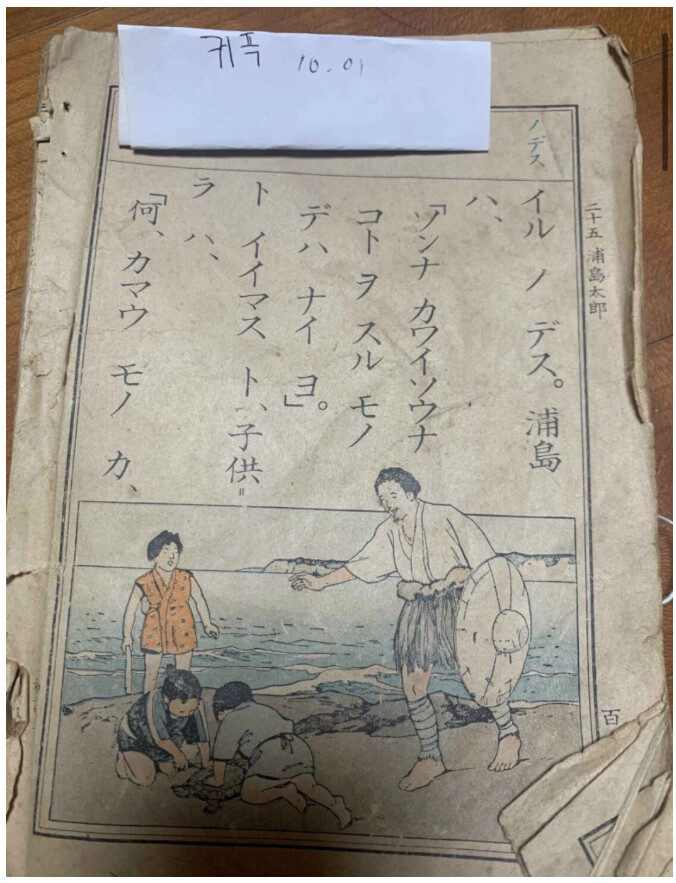 커픽
10.01
ノデス
二十五 浦島太郎
イル ノ デス。浦島
ハ、
「ソンナ カワイソウナ
コト ヲ スル モノ
デハ ナイ ヨ」。
ト イイマス ト、子供゠
ラ ハ、
「何、カマウ モノ カ、
百